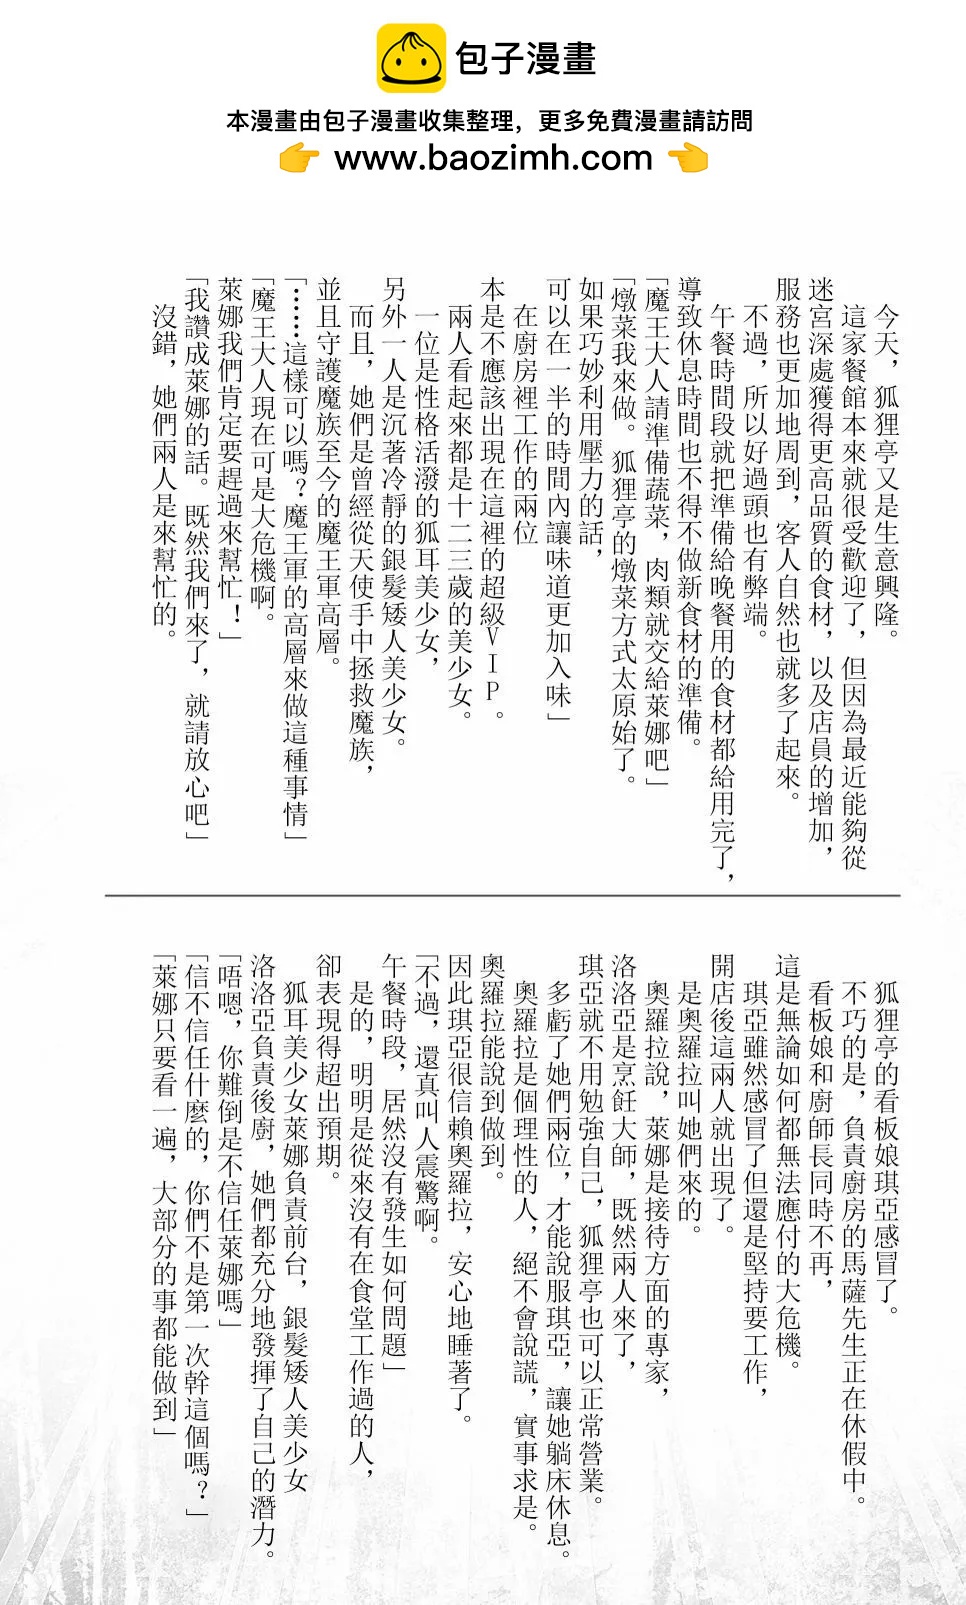 包子漫畫
本漫畫由包子漫畫收集整理，更多免費漫畫請訪問
👉 www.baozimh.com 👈
今天，狐狸亭又是生意興隆。
這家餐館本來就很受歡迎了，但因為最近能夠從
迷宮深處獲得更高品質的食材，以及店員的增加，
服務也更加地周到，客人自然也就多了起來。
不過，所以好過頭也有弊端。
午餐時間段就把準備給晚餐用的食材都給用完了，
導致休息時間也不得不做新食材的準備。
「魔王大人請準備蔬菜，肉類就交給萊娜吧」
「燉菜我來做。狐狸亭的燉菜方式太原始了。
如果巧妙利用壓力的話，
可以在一半的時間內讓味道更加入味」
在廚房裡工作的兩位
本是不應該出現在這裡的超級VIP。
兩人看起來都是十二三歲的美少女。
一位是性格活潑的狐耳美少女，
另外一人是沉著冷靜的銀髮矮人美少女。
而且，她們是曾經從天使手中拯救魔族，
並且守護魔族至今的魔王軍高層。
「……這樣可以嗎？魔王軍的高層來做這種事情」
「魔王大人現在可是大危機啊。
萊娜我們肯定要趕過來幫忙！」
「我讚成萊娜的話。既然我們來了，就請放心吧」
沒錯，她們兩人是來幫忙的。
狐狸亭的看板娘琪亞感冒了。
不巧的是，負責廚房的馬薩先生正在休假中。
看板娘和廚師長同時不再，
這是無論如何都無法應付的大危機。
琪亞雖然感冒了但還是堅持要工作，
開店後這兩人就出現了。
是奧羅拉叫她們來的。
奧羅拉說，萊娜是接待方面的專家，
洛洛亞是烹飪大師，既然兩人來了，
琪亞就不用勉強自己，狐狸亭也可以正常營業。
多虧了她們兩位，才能說服琪亞，讓她躺床休息。
奧羅拉是個理性的人，絕不會說謊，實事求是。
奧羅拉能說到做到。
因此琪亞很信賴奧羅拉，安心地睡著了。
「不過，還真叫人震驚啊。
午餐時段，居然沒有發生如何問題」
是的，明明是從來沒有在食堂工作過的人，
卻表現得超出預期。
狐耳美少女萊娜負責前台，銀髮矮人美少女
洛洛亞負責後廚，她們都充分地發揮了自己的潛力。
「唔嗯，你難倒是不信任萊娜嗎」
「信不信任什麼的，你們不是第一次幹這個嗎？」
「萊娜只要看一遍，大部分的事都能做到」